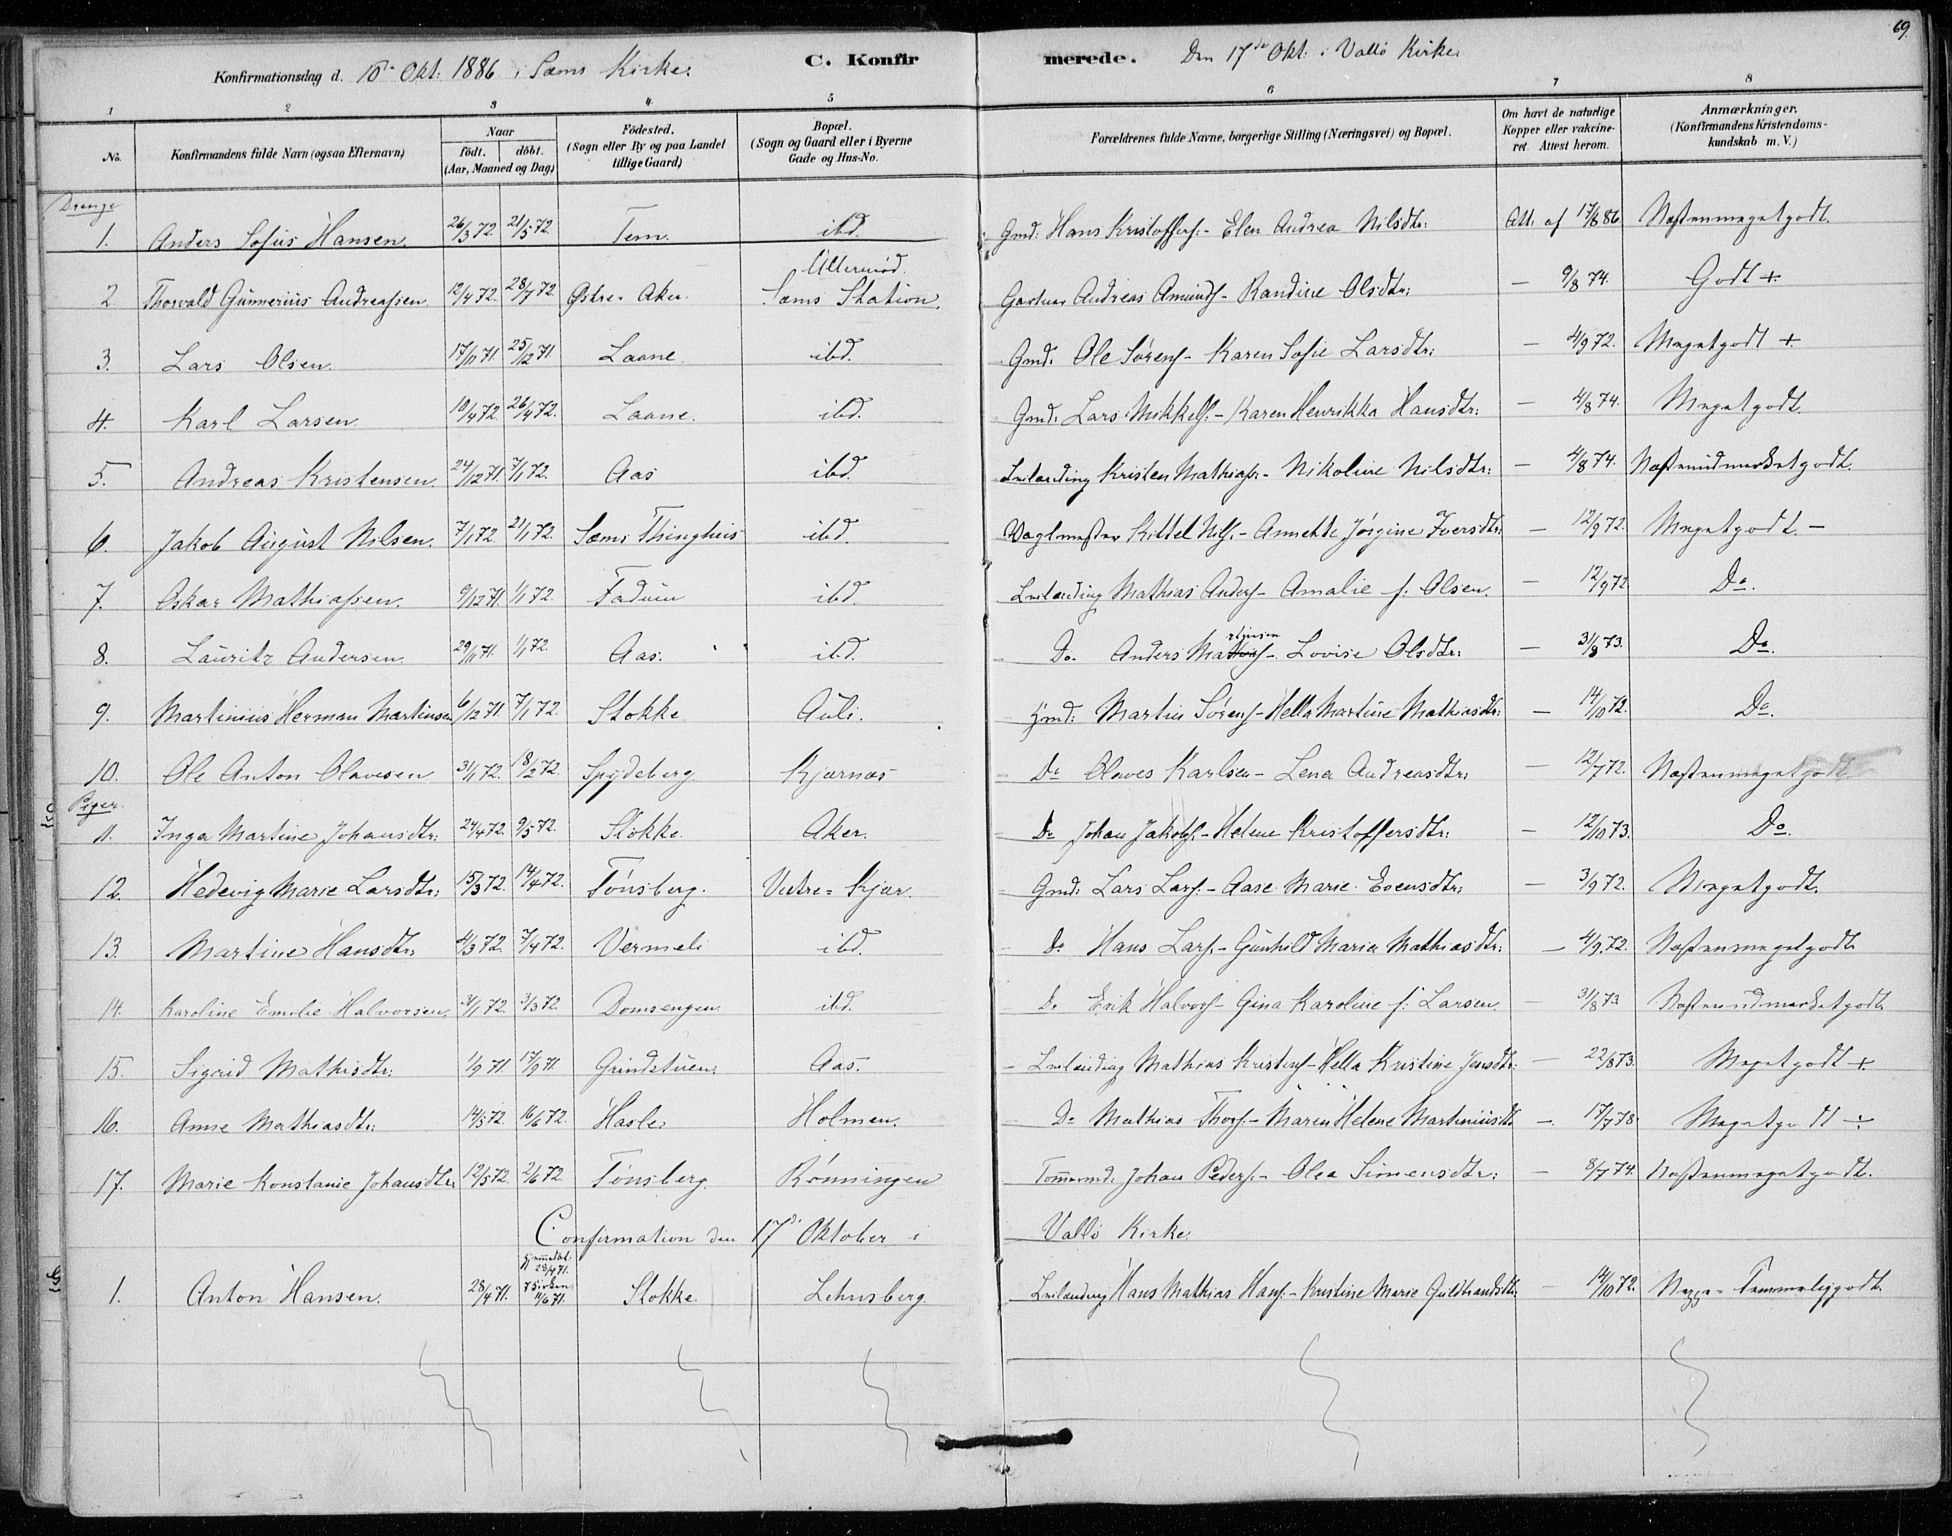 69.
Konfirmationsdag d. 10de Okt. 1886 i Sems Kirke. C. Konfirmerede. Den 17de Okt. i Vallö Kirke.
1 2 3 4 5 6 7 8
No. Konfirmandens fulde Navn (ogsaa Efternavn) Naar født. døbt. (Aar, Maaned og Dag) Fødested. (Sogn eller By og paa Landet tillige Gaard) Bopæl. (Sogn og Gaard eller i Byerne Gade og Hus-No. Forældrenes fulde Navne, borgerlige Stilling (Næringsvei) og Bopæl. Om havt de naturlige Kopper eller vakcineret. Attest herom. Anmærkninger. (Konfirmandens Kristendomskundskab m. V.)
Drenge
1. Anders Sofus Hansen. 26/3 72. 21/5 72. Tem. ibd. Gmd. Hans Kristoffers. - Elen Andrea Nilsdtr: Att. af 17/8 86. Næstenmegetgodt.
2. Thorvald Gunnerius Andreassen 12/4 72. 28/7 72. Østre Aker. Sems Station. Gartner Andreas Amunds. - Randine Olsdtr: — 9/8 74. Godt +.
3. Lars Olsen. 17/11 71. 25/12 71. Laane. ibd. Gmd. Ole Sørens. - Karen Sofie Larsdtr: — 4/9 72. Megetgodt +
4. Karl Larsen. 10/4 72. 26/4 72. Laane. ibd. Gmd. Lars Mikkels. - Karen Henrikka Hansdtr: — 4/8 74. Megetgodt.
5. Andreas Kristensen. 24/12 71. 7/1 72. Aas ibd. Leilænding Kristen Mathias. - Nikoline Nilsdtr: — 4/8 74. Næstenudmærketgodt.
6. Jakob August Nilsen. 7/1 72. 21/1 72. Sems Thinghus ibd. Vagtmester Kittel Nils. - Annette Jørgine Iversdtr: — 12/9 72. Megetgodt -
7. Oskar Mathiassen. 9/12 71. 1/1 72. Fadum ibd. Leilænding Mathias Anders. - Amalie f. Olsen. — 12/9 72. Do.
8. Lauritz Andersen. 29/11 71. 1/1 72. Aas. ibd. Do Anders Ma - Lovise Olsdtr: — 31/8 73. Do.
9. Martinius Herman Martinsen 6/12 71. 7/1 72. Stokke. Auli. Gmd. Martin Sørens. - Hella Martine Mathiasdtr: — 14/10 72. Do.
10. Ole Anton Olavesen 31/1 72. 18/2 72. Spydeberg. Kjærnæs Do Olaves Karlsen - Lena Andreasdtr: — 12/7 72. Næstenmegetgodt.
Piger.
11. Inga Martine Johansdtr: 24/4 72. 9/5 72. Stokke. Aker. Do Johan Jakobs. - Helene Kristoffersdtr: — 12/10 73. Do.
12. Hedevig Marie Larsdtr: 15/3 72. 14/4 72. Tønsberg. Vestre-Kjær. Gmd. Lars Lars. - Aase Marie Evensdtr: — 3/9 72. Megetgodt.
13. Martine Hansdtr: 4/3 72. 7/4 72. Vermeli ibd. Do Hans Lars. - Gunhild Maria Mathiasdtr: — 4/9. 72. Næstenmegetgodt
14. Karoline Emilie Halvorsen. 31/1 72. 3/3 72. Domsengen. ibd. Do Erik Halvors. - Gina Karoline f. Larsen. — 31/8 73 Næstenudmærketgodt.
15. Sigrid Mathisdtr: 1/9 71 17/9 71 Grindstuen. Aas. Leilænding Mathias Kristens. - Hella Kristine Jensdtr: — 22/8 73. Megetgodt +
16. Anne Mathiasdtr: 14/5 72. 16/6 72. Hasle. Holmen. Do Mathias Thors. - Maren Helene Martiniusdtr — 17/7 78. Megetgodt ÷
17. Marie Konstanse Johansdtr. 12/5 72. 2/6 72. Tønsberg. Rønningen Tømmermd. Johan Peders. - Olea Simensdtr: — 8/7 74. Næstenmegetgodt.
Confirmation den 17de Oktober i Vallö Kirke.
1. Anton Hansen. 28/4 71. hjemmedøbt. 28/4 71. i Kirken 11/6 71. Stokke. Lehnsberg. Leilænding Hans Mathias Hans. - Kristine Marie Guldbrandsdtr: — 14/10 72. Neppe Temmeliggodt.